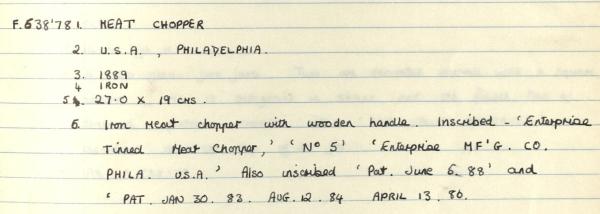 F.638'78 1. MEAT CHOPPER
2. U.S.A., PHILADELPHIA.
3. 1889
4 IRON
5. 27.0 x 19 CMS.
6. Iron Meat chopper with wooden handle. Inscribed - 'Enterprise
Tinned Meat Chopper,' 'No 5' 'Enterprise MF'G. CO.
PHILA. U.S.A.' Also inscribed 'Pat. June 5. 88' and
'PAT. JAN 30. 83. AUG. 12. 84 APRIL 13. 86.